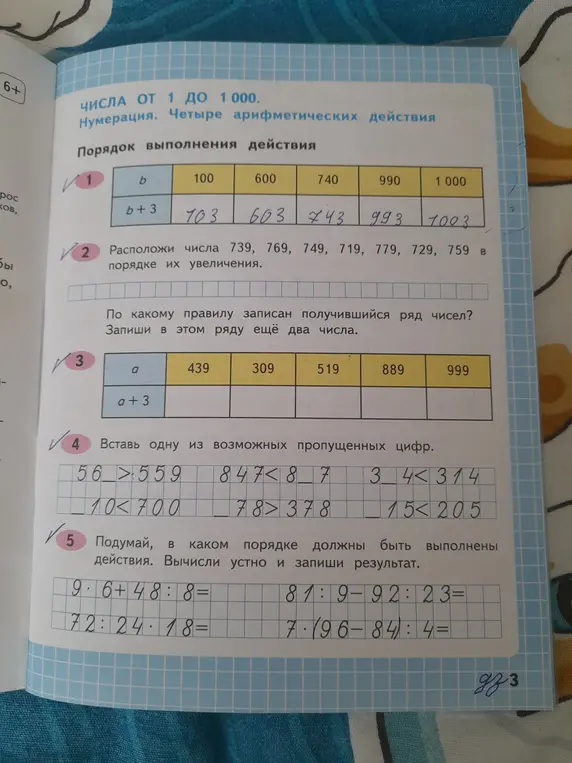 6+
ЧИСЛА ОТ 1 ДО 1 000.
Нумерация. Четыре арифметических действия
Порядок выполнения действия
1 b 100 600 740 990 1 000
b + 3 103 603 743 993 1003
2 Расположи числа 739, 769, 749, 719, 779, 729, 759 в
порядке их увеличения.
По какому правилу записан получившийся ряд чисел?
Запиши в этом ряду ещё два числа.
3 a 439 309 519 889 999
a + 3
4 Вставь одну из возможных пропущенных цифр.
56_>559 847<8_7 3_4<314
_10<700 _78>378 _15<205
5 Подумай, в каком порядке должны быть выполнены
действия. Вычисли устно и запиши результат.
9·6+48:8= 81:9−92:23=
72:24·18= 7·(96−84):4=
дз 3